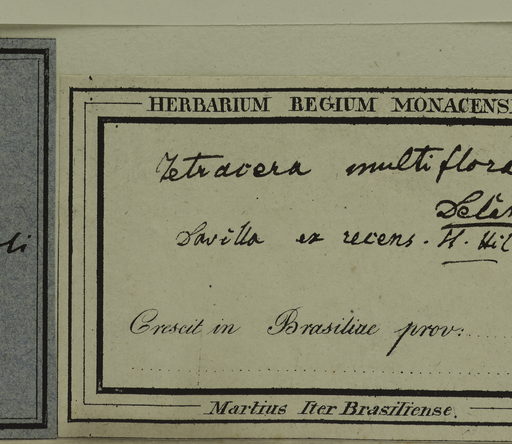 HERBARIUM REGIUM MONACENS
Tetracera multiflora
Davilla ex recens. H. Hil
Crescit in Brasiliae prov:
Martius Iter Brasiliense.
li